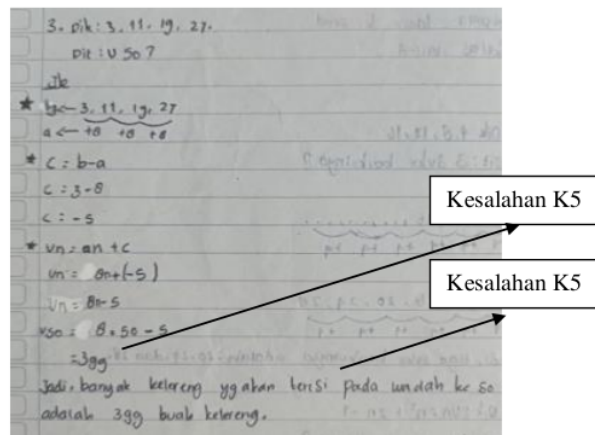 3. Dik : 3, 11, 19, 27.
Dit : U 50 ?
Jb
* b ← 3, 11, 19, 27
a ← +8 +8 +8
* c = b-a
c = 3-8
c = -5
* Un = an + c
Un = 8n+(-5)
Un = 8n-5
U50 = 8.50 - 5
= 399
Jadi, banyak kelereng yg akan terisi pada wadah ke 50
adalah 399 buah kelereng.
Kesalahan K5
Kesalahan K5